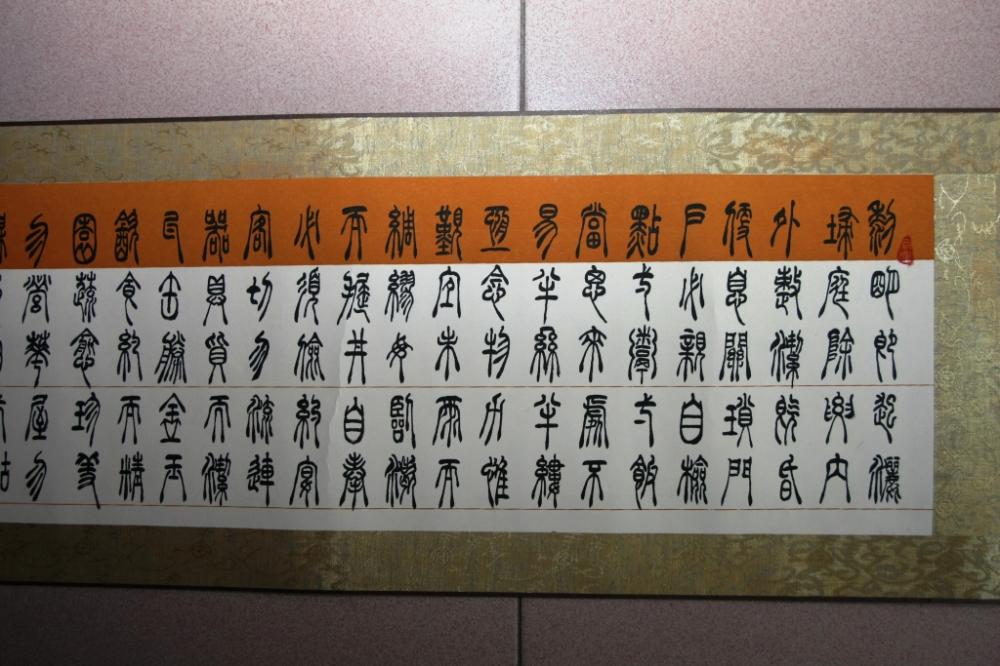 黎明即起灑
掃庭除要內
外整潔既昏
便息關鎖門
戶必親自檢
點一粥一飯
當思來處不
易半絲半縷
恆念物力惟
艱宜未雨而
綢繆毋臨渴
而掘井自奉
必須儉約宴
客切勿流連
器具質而潔
瓦缶勝金玉
飲食約而精
園蔬愈珍羞
勿營華屋勿